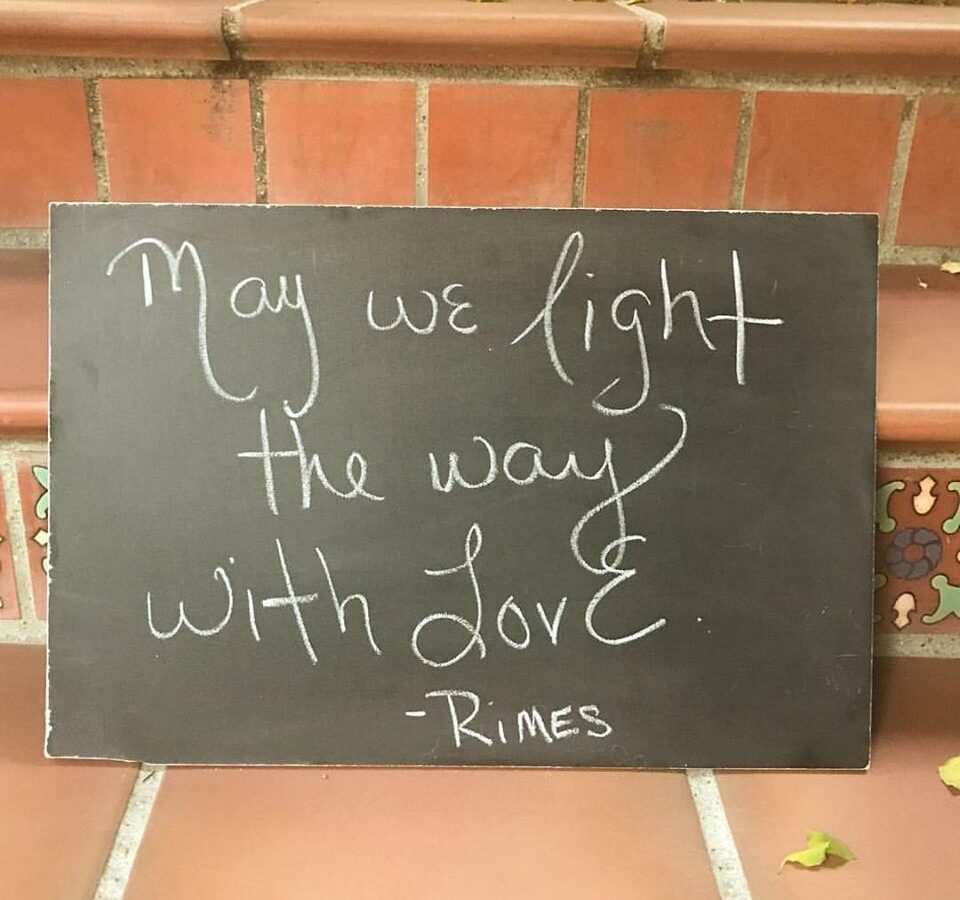 May we light
the way
with Love.
-Rimes